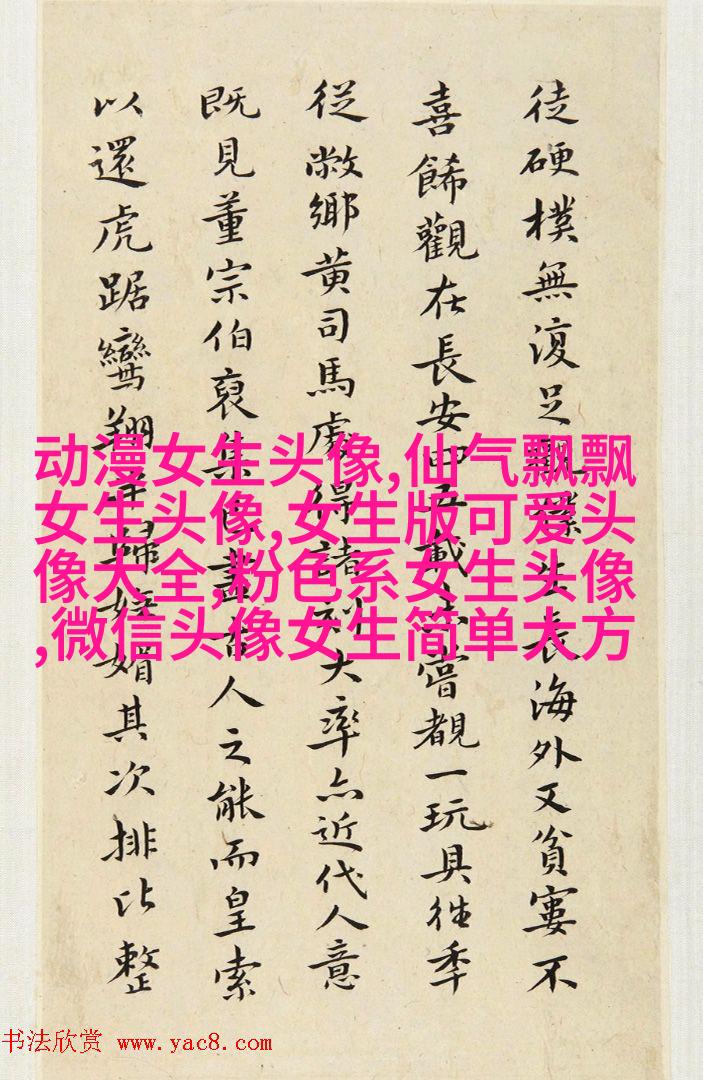 徒硬樸無復足長海外又貧窶不
喜餙觀在長安五載嘗覩一玩具往季
從敝鄉黄司馬處得諸刻大率亦近代人意
既見董宗伯裒集古人之能而皇索
以還虎踞鸞翔媚其次排比整
动漫女生头像,仙气飘飘
女生头像,女生版可爱头
像大全,粉色系女生头像
,微信头像女生简单大方
书法欣赏 www.yac8.com